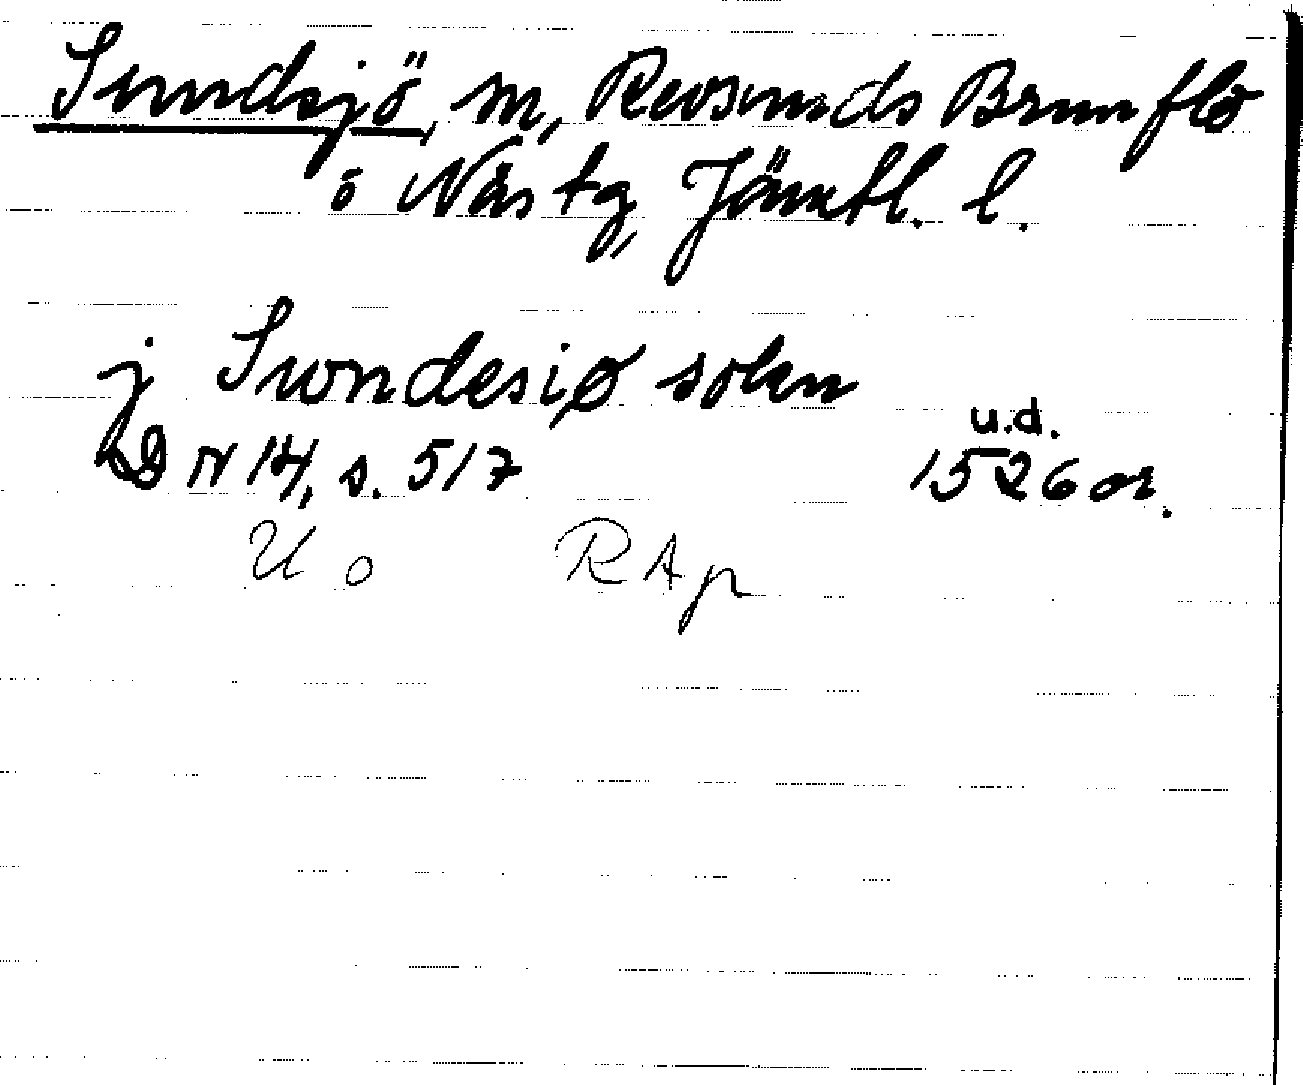 Sundsjö, sn, Revsunds Brunflo
o Näs tg, Jämtl. l.
j Swndesiø sokn
u.d.
DN 14, s. 517 1526 or.
U o RAp